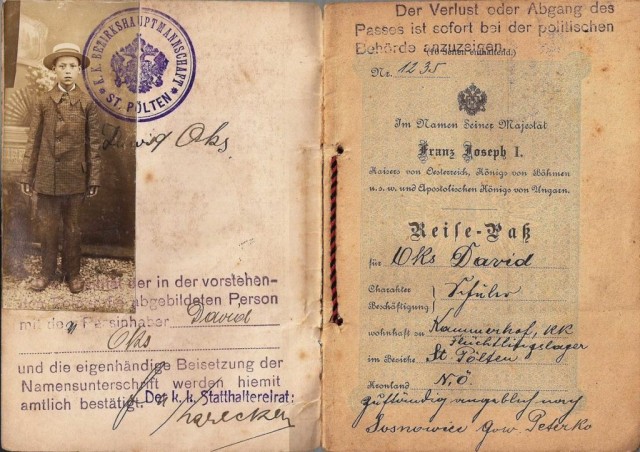 K. K. BEZIRKSHAUPTMANNSCHAFT
ST. PÖLTEN
David Oks.
der in der vorstehen-
abgebildeten Person
mit dem Passinhaber David
Oks
und die eigenhändige Beisetzung der
Namensunterschrift werden hiemit
amtlich bestätigt.
Der k. k. Statthaltereirat:
Der Verlust oder Abgang des
Passes ist sofort bei der politischen
Behörde anzuzeigen.
Nr. 1235
Im Namen Seiner Majestät
Franz Joseph I.
Kaisers von Oesterreich, Königs von Böhmen
u. s. w. und Apostolischen Königs von Ungarn.
Reise-Paß
für Oks David
Charakter
Beschäftigung
Schüler
wohnhaft zu Kammerhof, KK
Flüchtlingslager
im Bezirke St. Pölten
Kronland N.Ö.
zuständig angeblich nach
Sosnowice Gow.